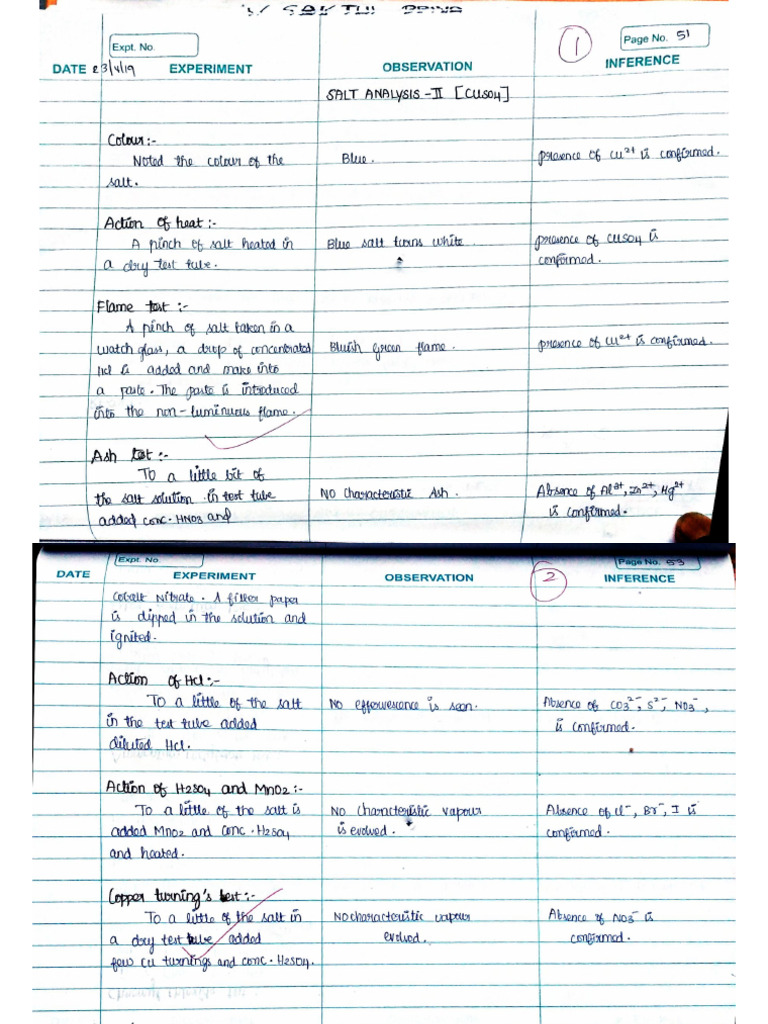 Expt. No.
1
Page No. 51
DATE 23/4/19 EXPERIMENT OBSERVATION INFERENCE
SALT ANALYSIS -II [CuSO4]
Colour:-
Noted the colour of the Blue. presence of Cu2+ is confirmed.
salt.
Action of heat :-
A pinch of salt heated in Blue salt turns white. presence of CuSO4 is
a dry test tube. confirmed.
Flame test :-
A pinch of salt taken in a
watch glass, a drop of concentrated Bluish Green flame. presence of Cu2+ is confirmed.
Hcl is added and make into
a paste. The paste is introduced
into the non-luminuous flame.
Ash test :-
To a little bit of
the salt solution in test tube NO characteristic Ash. Absence of Al3+, Zn2+, Hg2+
added conc. HNO3 and is confirmed.
Expt. No.
2
Page No. 53
DATE EXPERIMENT OBSERVATION INFERENCE
Cobalt Nitrate. A filter paper
is dipped in the solution and
ignited.
Action of Hcl:-
To a little of the salt No effervescence is seen. Absence of CO3 2-, S2-, NO3-,
in the test tube added is confirmed.
diluted Hcl.
Action of H2SO4 and MnO2:-
To a little of the salt is No characteristic vapour Absence of Cl-, Br-, I is
added MnO2 and conc. H2SO4 is evolved. confirmed.
and heated.
Copper turning's test:-
To a little of the salt in NO characteristic vapour Absence of NO3- is
a dry test tube added evolved. confirmed.
few cu turnings and conc. H2SO4.